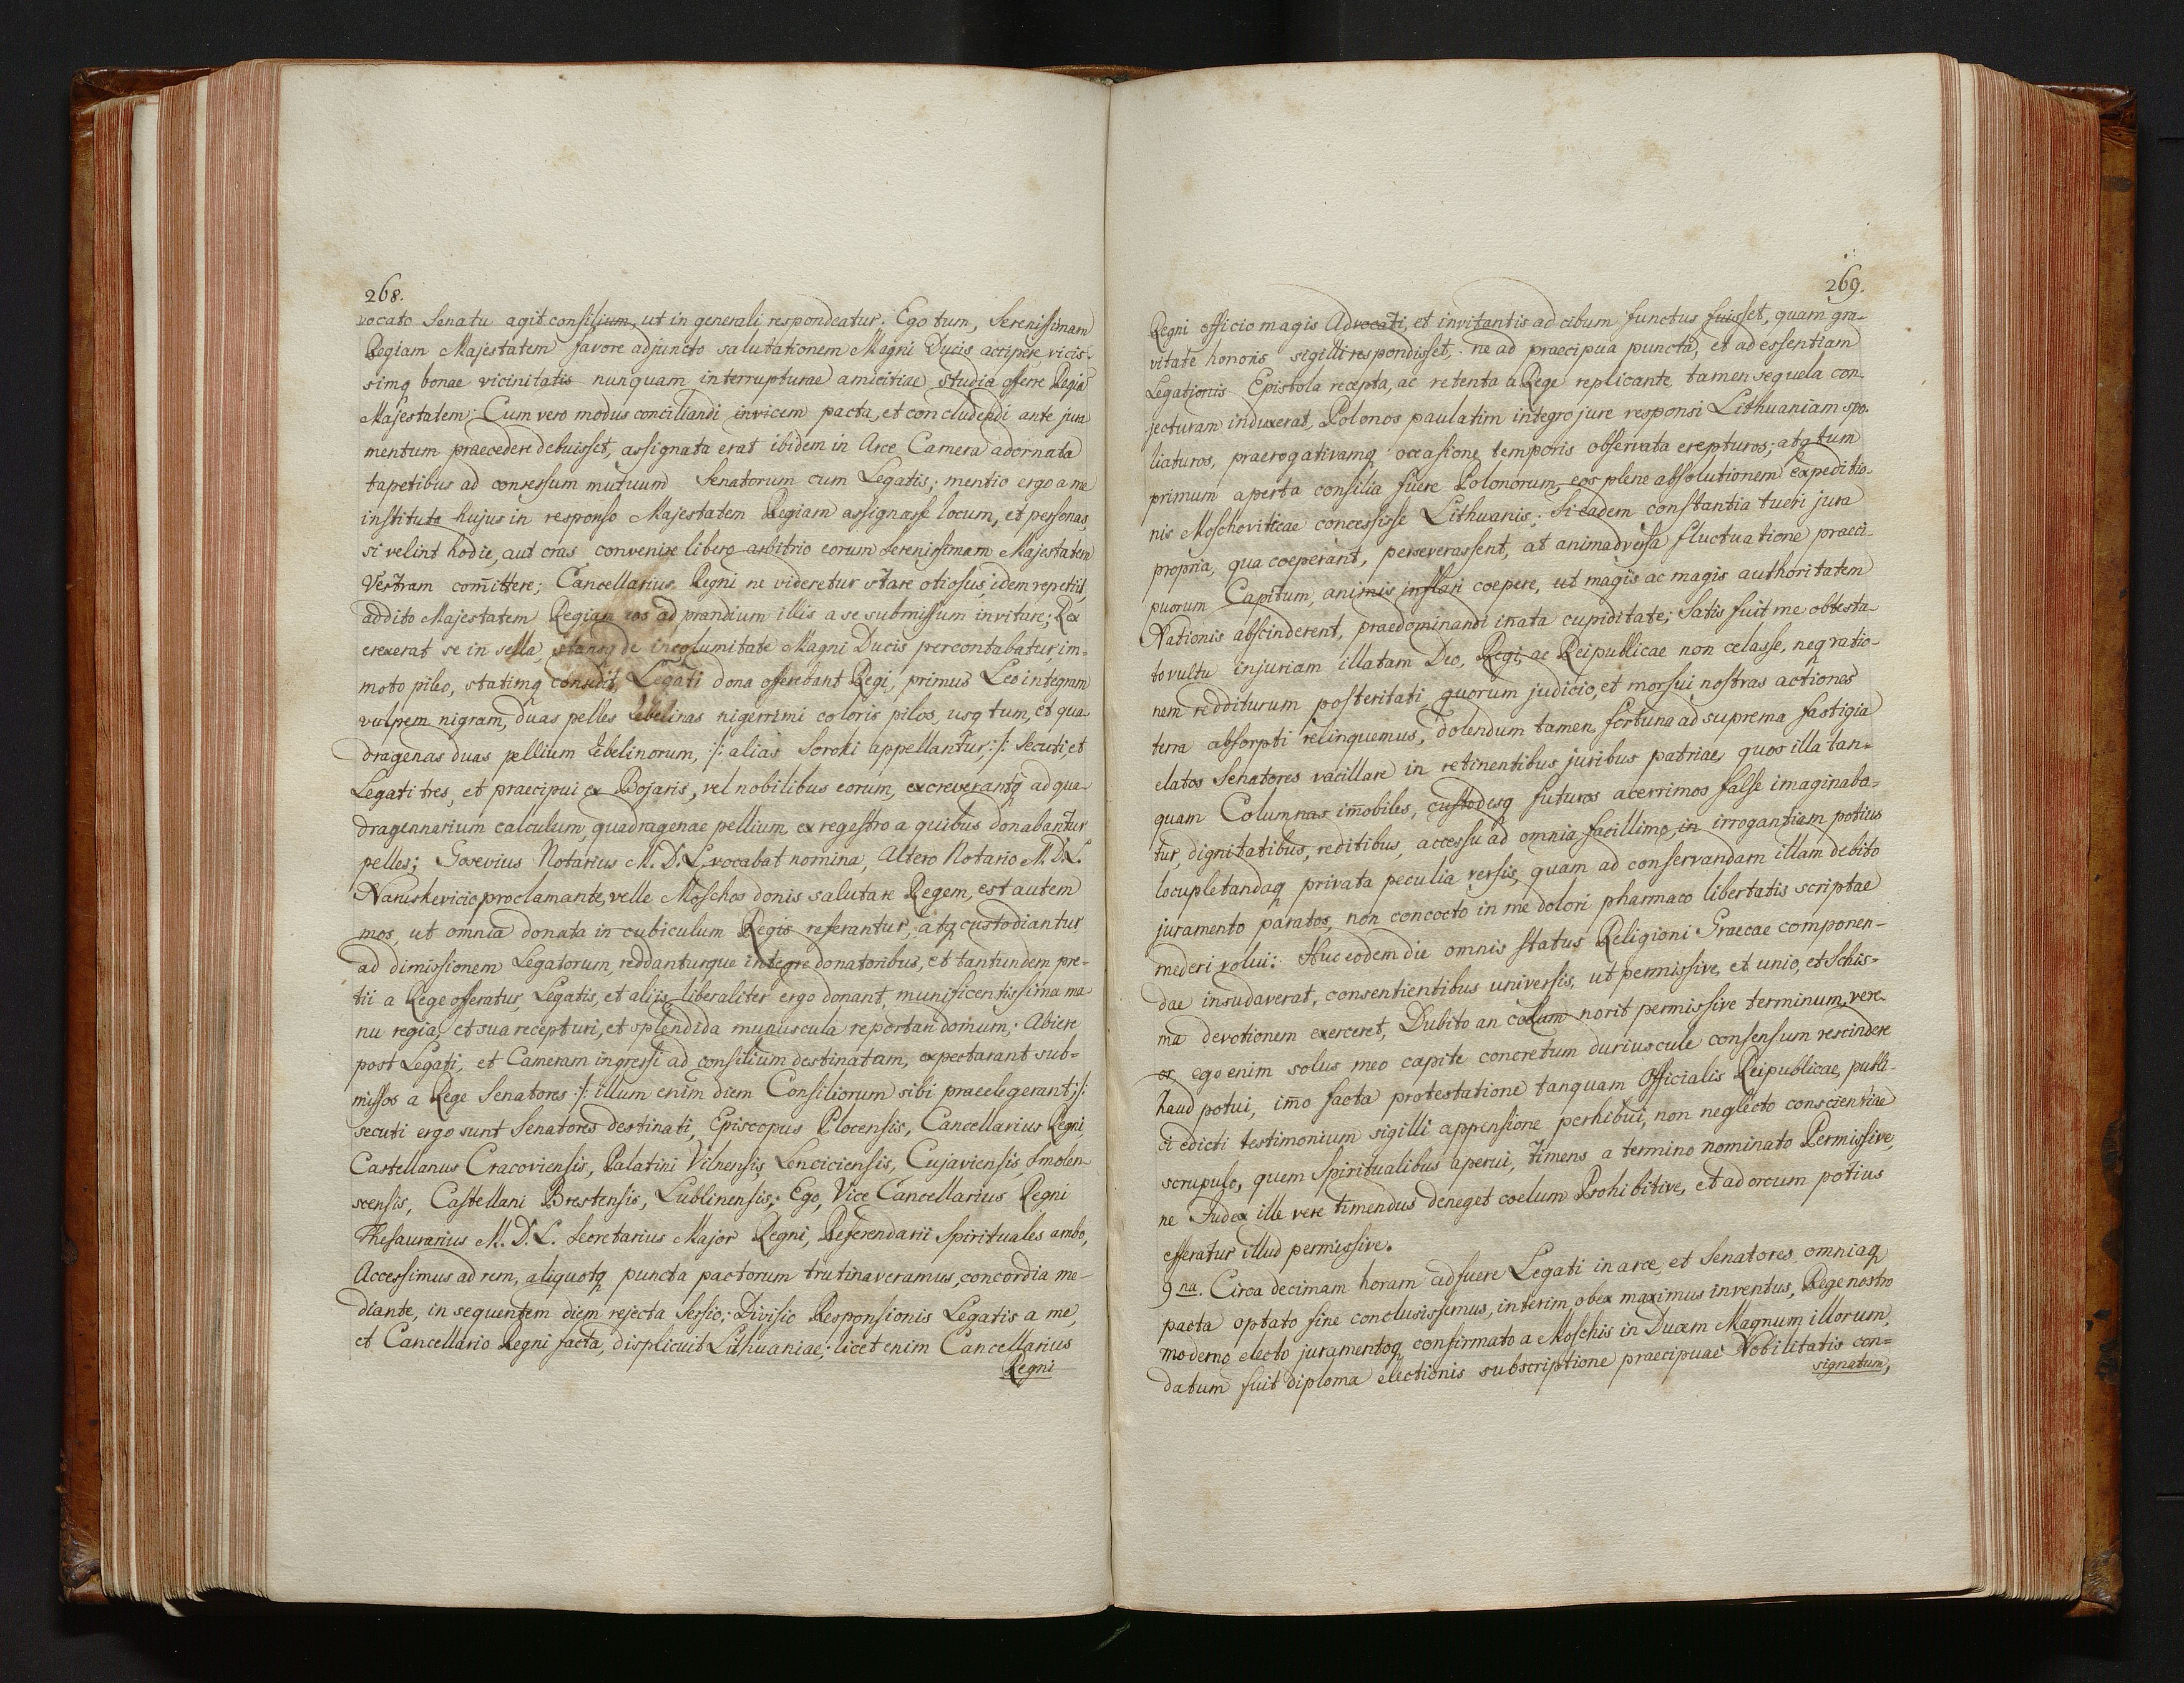 268.
vocato Senatu agit consilium, ut in generali respondeatur. Ego tum, Serenissimam
Regiam Majestatem favore adjuncto salutationem Magni Ducis accipere, vicis-
simq bonae vicinitatis nunquam interrupturae amicitiae studia offerre Regia
Majestatem: Cum vero modus conciliandi invicem pacta, et concludendi ante jura
mentum praecedere debuisset, assignata erat ibidem in Arce Camera adornata
tapetibus ad consessum mutuum Senatorum cum Legatis; mentio ergo a me
instituta hujus in responso Majestatem Regiam assignasse locum, et personas,
si velint hodie, aut cras convenire libero arbitrio eorum Serenissimam Majestatem
Vestram com̄ittere; Cancellarius Regni ne videretur stare otiosus, idem repetiit,
addito Majestatem Regiam eos ad prandium illis a se submissum invitare; Rex
erexerat se in sella, stansq de incolumitate Magni Ducis percontabatur, im-
moto pileo, statimq consedit, Legati dona offerebant Regi, primus Leo integram
vulpem nigram, duas pelles zebelinas nigerrimi coloris pilos, usq tum, et qua
dragenas duas pellium zebelinorum, :/: alias Soroki appellantur; :/: Secuti, et
Legati tres, et praecipui ex Bojaris, vel nobilibus eorum, excreverantq ad qua
dragennarium calculum, quadragenae pellium, ex regestro a quibus donabantur
pelles; Gosevius Notarius M. D. L. vocabat nomina, Altero Notario M. D. L.
Naruskevicio proclamante, velle Moschos donis salutare Regem, est autem
mos, ut omnia donata in cubiculum Regis referantur, atq custodiantur
ad dimissionem Legatorum, reddanturque integre donatoribus, et tantundem pre-
tii a Rege offeratur, Legatis, et aliis liberaliter ergo donant, munificentissima ma
nu regia, et sua recepturi, et splendida munuscula reportari domum; Abiere
post Legati, et Cameram ingressi ad consilium destinatam, expectarant sub-
missos a Rege Senatores :/: illum enim diem Consiliorum sibi praeelegerant; /:
secuti ergo sunt Senatores destinati, Episcopus Plocensis, Cancellarius Regni,
Castellanus Cracoviensis, Palatini Vilnensis, Lenciciensis, Cujaviensis, Smolen-
scensis, Castellani Brestensis, Lublinensis; Ego, Vice Cancellarius Regni
Thesaurarius M. D. L. Secretarius Major Regni, Referendarii Spirituales ambo,
Accessimus ad rem, aliquotq puncta pactorum trutinaveramus, concordia me-
diante, in sequentem diem rejecta Sessio; Divisio Responsionis Legatis a me,
et Cancellario Regni facta, displicuit Lithuaniae; licet enim Cancellarius
Regni
269.
Regni officio magis Advocati, et invitantis ad cibum functus fuisset, quam gra-
vitate honoris sigilli respondisset, ne ad praecipua puncta, et ad essentiam
Legationis Epistola recepta, ac retenta a Rege replicante, tamen sequela con-
jecturam induxerat, Polonos paulatim integro jure responsi Lithuaniam spo-
liaturos, praerogativamq occasione temporis observata erepturos; atq tum
primum aperta consilia fuere Polonorum, eos plene absolutionem expeditio-
nis Moschoviticae concessisse Lithuanis; Si eadem constantia tueri jura
propria, qua coeperant, perseverassent, at animadversa fluctuatione praeci-
puorum Capitum, animis inflari coepere, ut magis ac magis authoritatem
Nationis abscinderent, praedominandi in̄ata cupiditate; Satis fuit me obtesta-
to vultu injuriam illatam Deo, Regi, ac Reipublicae non celasse, neq ratio-
nem redditurum posteritati, quorum judicio, et morsui nostras actiones
tura absorpti relinquemus, dolendum tamen fortuna ad suprema fastigia
elatos Senatores vacillare in retinentibus juribus patriae, quos illa tan-
quam Columnas im̄obiles, custodesq futuros acerrimos false imaginaba-
tur, dignitatibus, reditibus, accessu ad omnia facillimo, in irrogantiam potius
locupletandaq privata peculia versis, quam ad conservandam illam debito
juramento paratos, non concocto in me dolori pharmaco libertatis scriptae
mederi volui: Huc eodem die omnis status Religioni Graecae componen-
dae insudaverat, consentientibus universis, ut permissive, et unio, et Schis-
ma devotionem exerceret, Dubito an coelum norit permissive terminum, vere-
or, ego enim solus meo capite concretum duriuscule consensum rescindere
haud potui, im̄o facta protestatione tanquam Officialis Reipublicae, publi-
ci edicti testimonium sigilli appensione perhibui, non neglecto conscientiae
scrupulo, quem Spiritualibus aperui, timens a termino nominato Permissive,
ne Judex ille vere timendus deneget coelum Prohibitive, et ad orcum potius
efferatur illud permissive.
9na. Circa decimam horam adfuere Legati in arce, et Senatores, omniaq
pacta optato fine conclusissemus, interim, obex maximus inventus, Rege nostro
moderno electo juramentoq confirmato a Moschis in Ducem Magnum illorum,
datum fuit diploma electionis subscriptione praecipuae Nobilitatis con=
signatum,